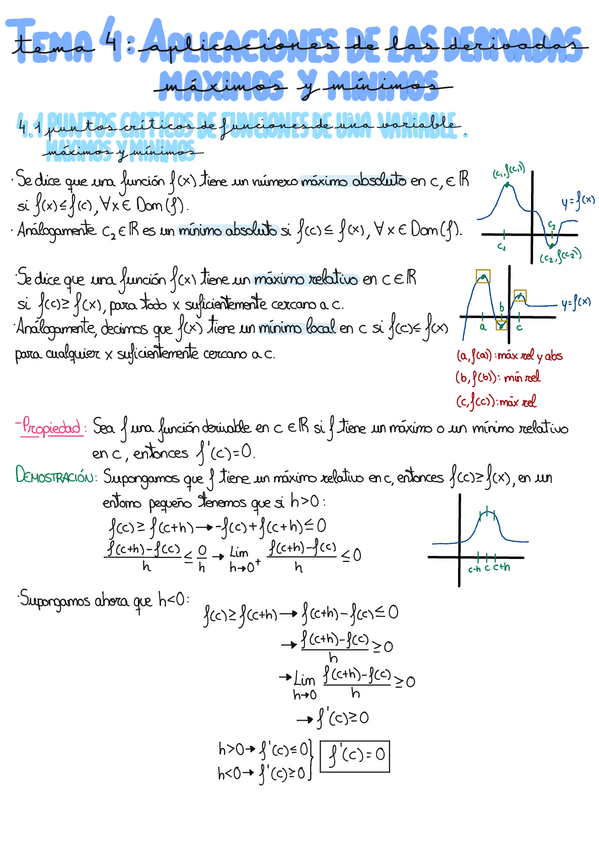 Tema 4: Aplicaciones de las derivadas
máximos y mínimos
4.1 puntos críticos de funciones de una variable.
máximos y mínimos
· Se dice que una función f(x) tiene un número máximo absoluto en c₁ ∈ ℝ
si f(x) ≤ f(c), ∀x ∈ Dom(f).
· Análogamente c₂ ∈ ℝ es un mínimo absoluto si f(c) ≤ f(x), ∀x ∈ Dom(f).
(c₁, f(c₁))
y=f(x)
c₁
c₂
(c₂, f(c₂))
· Se dice que una función f(x) tiene un máximo relativo en c ∈ ℝ
si f(c) ≥ f(x), para todo x suficientemente cercano a c.
· Análogamente, decimos que f(x) tiene un mínimo local en c si f(c) ≤ f(x)
para cualquier x suficientemente cercano a c.
y=f(x)
a b c
(a, f(a)): máx rel y abs
(b, f(b)): mín rel
(c, f(c)): máx rel
-Propiedad: Sea f una función derivable en c ∈ ℝ si f tiene un máximo o un mínimo relativo
en c, entonces f'(c)=0.
DEMOSTRACIÓN: Supongamos que f tiene un máximo relativo en c, entonces f(c) ≥ f(x), en un
entorno pequeño tenemos que si h>0:
f(c) ≥ f(c+h) → -f(c)+f(c+h) ≤ 0
f(c+h)-f(c)/h ≤ 0/h → Lim h→0⁺ f(c+h)-f(c)/h ≤ 0
c-h c c+h
· Supongamos ahora que h<0:
f(c) ≥ f(c+h) → f(c+h)-f(c) ≤ 0
→ f(c+h)-f(c)/h ≥ 0
→ Lim h→0 f(c+h)-f(c)/h ≥ 0
→ f'(c) ≥ 0
h>0 → f'(c) ≤ 0
h<0 → f'(c) ≥ 0
} f'(c)=0